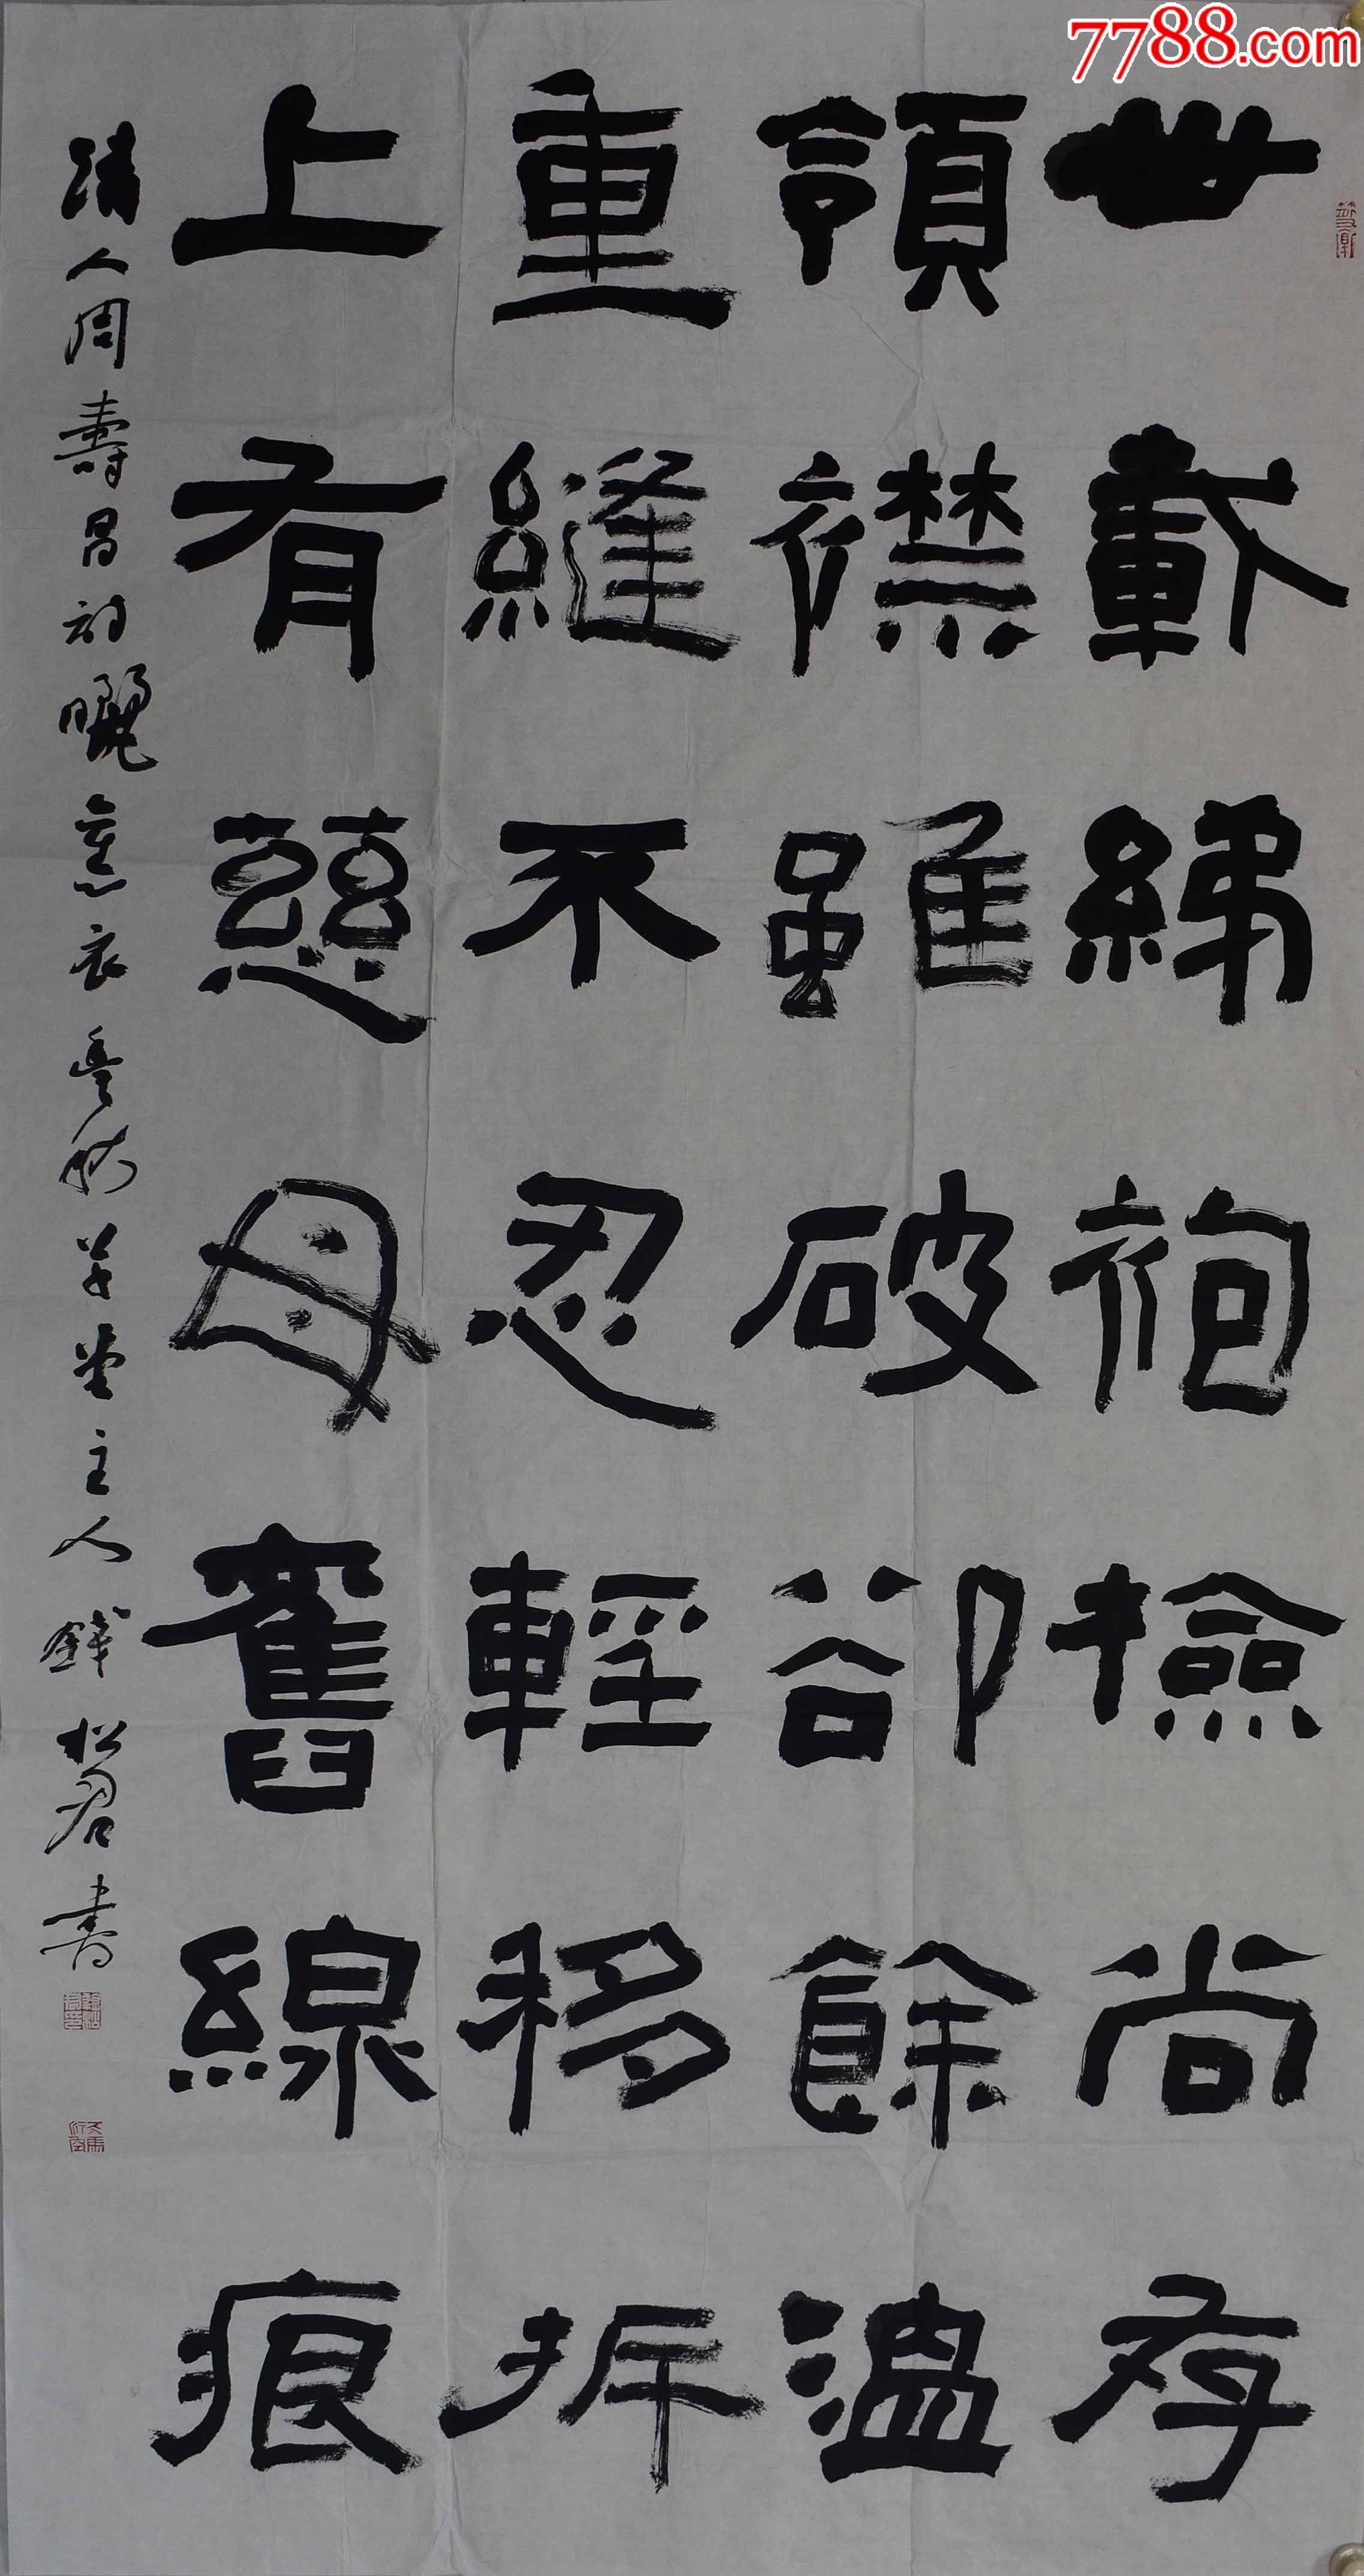 7788.com
卅載綈袍檢尚存
領襟雖破卻餘溫
重縫不忍輕移拆
上有慈母舊線痕
清人周壽昌詩曬舊衣草堂主人錢松君書